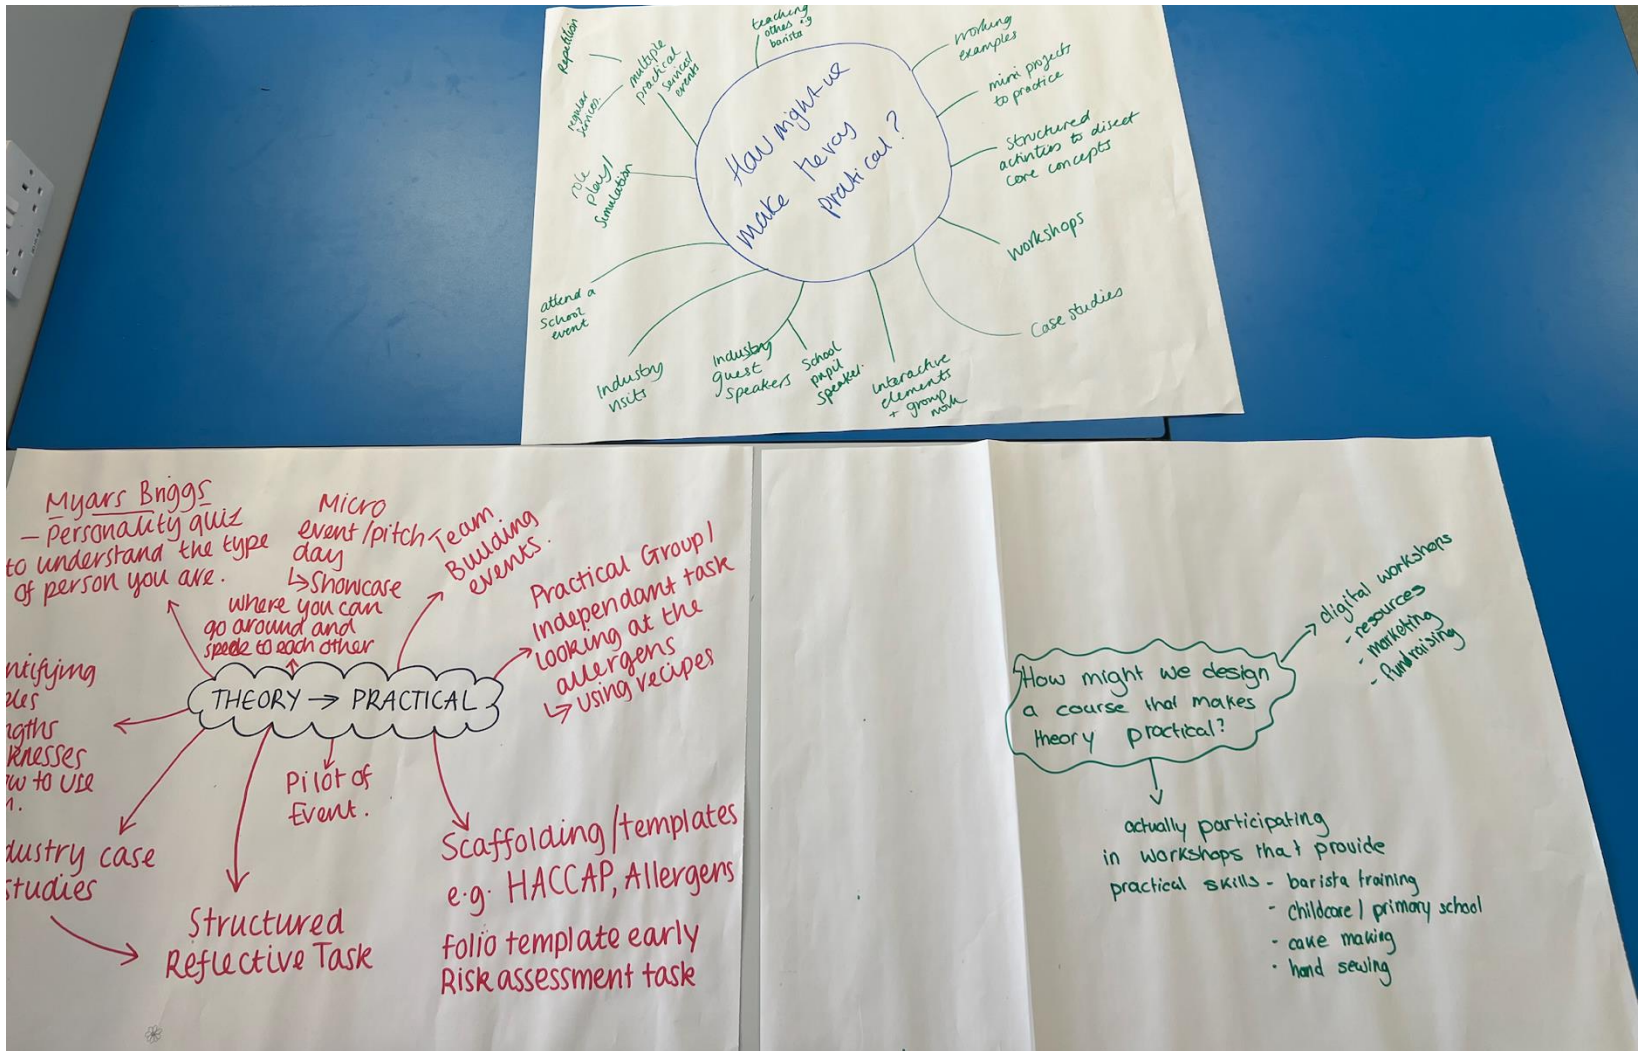 How might we
make
heroy
pratical?
teaching
othes eg
barista
working
examples
mini projects
to practice
Structured
activities to disect
core concepts
workshops
Case studies
interactive
elements
+ group
work
School
pupil
speaker.
Industry
guest
speakers
Industry
visits
attend a
School
event
role
play/
simulation
multiple
practical
services/
events
repetition
regular
services
Myars Briggs
- Personality quiz
to understand the type
of person you are.
Micro
event/pitch
day
↳ Showcase
where you can
go around and
to each other
Team
Building
events.
Practical Group/
Independant task
looking at the
allergens
↳ using recipes
THEORY → PRACTICAL
ntifying
les
ngths
knesses
w to use
n.
dustry case
studies
Structured
Reflective Task
Pilot of
Event.
Scaffolding/templates
e.g. HACCAP, Allergens
folio template early
Risk assessment task
How might we design
a course that makes
theory practical?
digital workshops
- resources
- marketing
- fundraising
actually participating
in workshops that provide
practical skills - barista training
- childcare / primary school
- cake making
- hand sewing